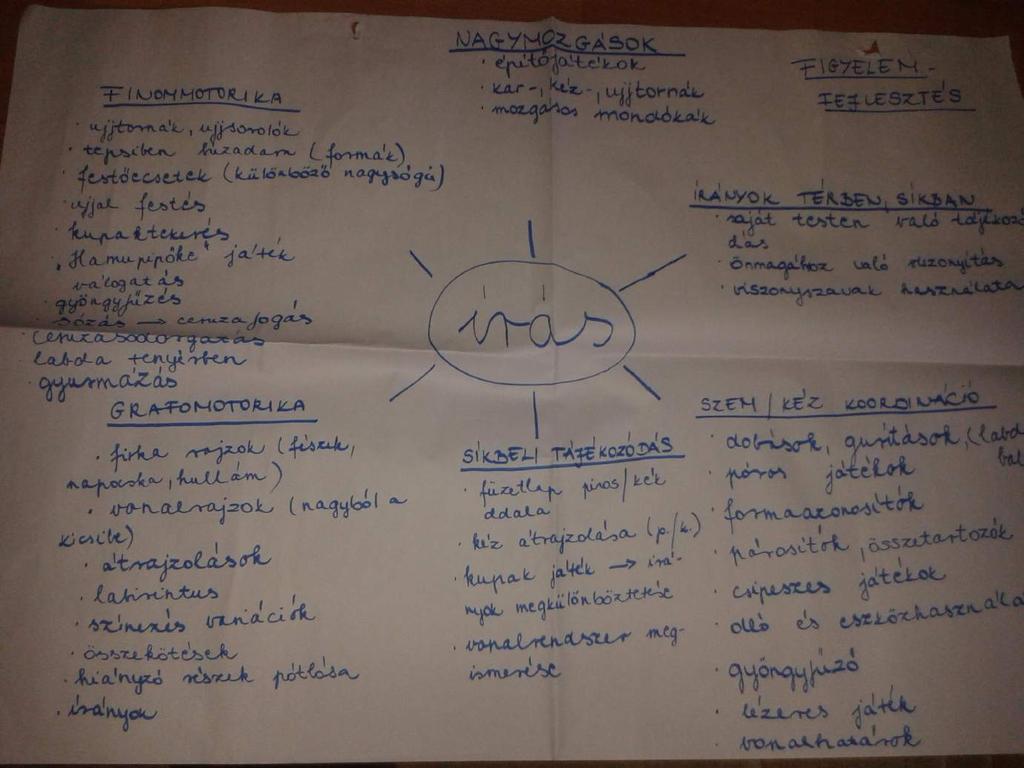 NAGYMOZGÁSOK
· építőjátékok
· kar-, kéz-, ujjtornák
· mozgásos mondókák
FIGYELEM-
FEJLESZTÉS
FINOMMOTORIKA
· ujjtornák, ujjsorolók
· tepsiben búzadara (formák)
· festőecsetek (különböző nagyságú)
· ujjal festés
· kupaktekerés
· „Hamupipőke" játék
válogatás
· gyöngyfűzés
· sózás → ceruzafogás
· ceruzasodorgatás
· labda tenyérben
· gyurmázás
ÍRÁNYOK TÉRBEN, SÍKBAN
· saját testen való tájékozó
dás
· önmagához való viszonyítás
· viszonyszavak használata
írás
GRAFOMOTORIKA
· firka rajzok (fészek,
napocska, hullám)
· vonalrajzok (nagyból a
kicsibe)
· átrajzolások
· labirintus
· színezés variációk
· összekötések
· hiányzó részek pótlása
· irányok
SÍKBELI TÁJÉKOZÓDÁS
· füzetlap piros/kék
oldala
· kéz átrajzolása (p./k.)
· kupak játék → irá-
nyok megkülönböztetése
· vonalrendszer meg-
ismerése
SZEM / KÉZ KOORDINÁCIÓ
· dobások, gurítások, (labd
bab
· páros játékok
· formaazonosítók
· párosítók, összetartozók
· csipeszes játékok
· olló és eszközhasznála
gyöngyfűző
· lézeres játék
· vonalhatárok